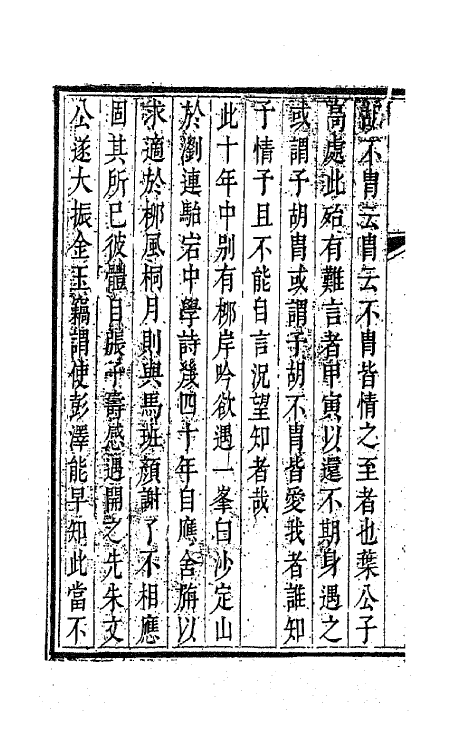 不胄云胄云不胄皆情之至者也葉公子
高處此殆有難言者甲寅以還不期身遇之
或謂予胡胄或謂予胡不胄皆愛我者誰知
予情予且不能自言況望知者哉
此十年中别有栁岸吟欲遇一峯白沙定山
於瀏連駘宕中學詩幾四十年自應舍旃以
求適於栁風桐月則與馬班顏謝了不相應
固其所已彼體自張子壽感遇開之先朱文
公遂大振金玉竊謂使彭澤能早知此當不